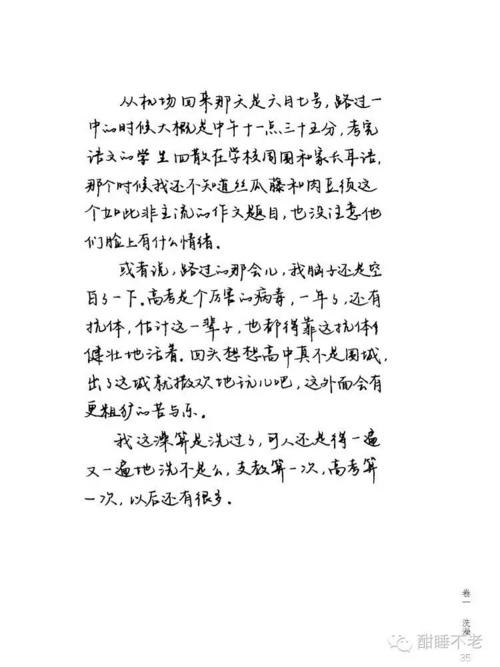 从机场回来那天是六月七号，路过一
中的时候大概是中午十一点三十五分，考完
语文的学生四散在学校周围和家长耳语，
那个时候我还不知道丝瓜藤和肉豆须这
个如此非主流的作文题目，也没注意他
们脸上有什么情绪。
或者说，路过的那会儿，我脑子还是空
白了一下。高考是个厉害的病毒，一年了，还有
抗体，估计这一辈子，也都得靠这抗体
健壮地活着。回头想想高中真不是围城，
出了这城就撒欢地玩儿吧，这外面会有
更粗犷的苦与乐。
我这澡算是洗过了，可人还是得一遍
又一遍地洗不是么，支教算一次，高考算
一次，以后还有很多。
卷一 洗澡
酣睡不老
35